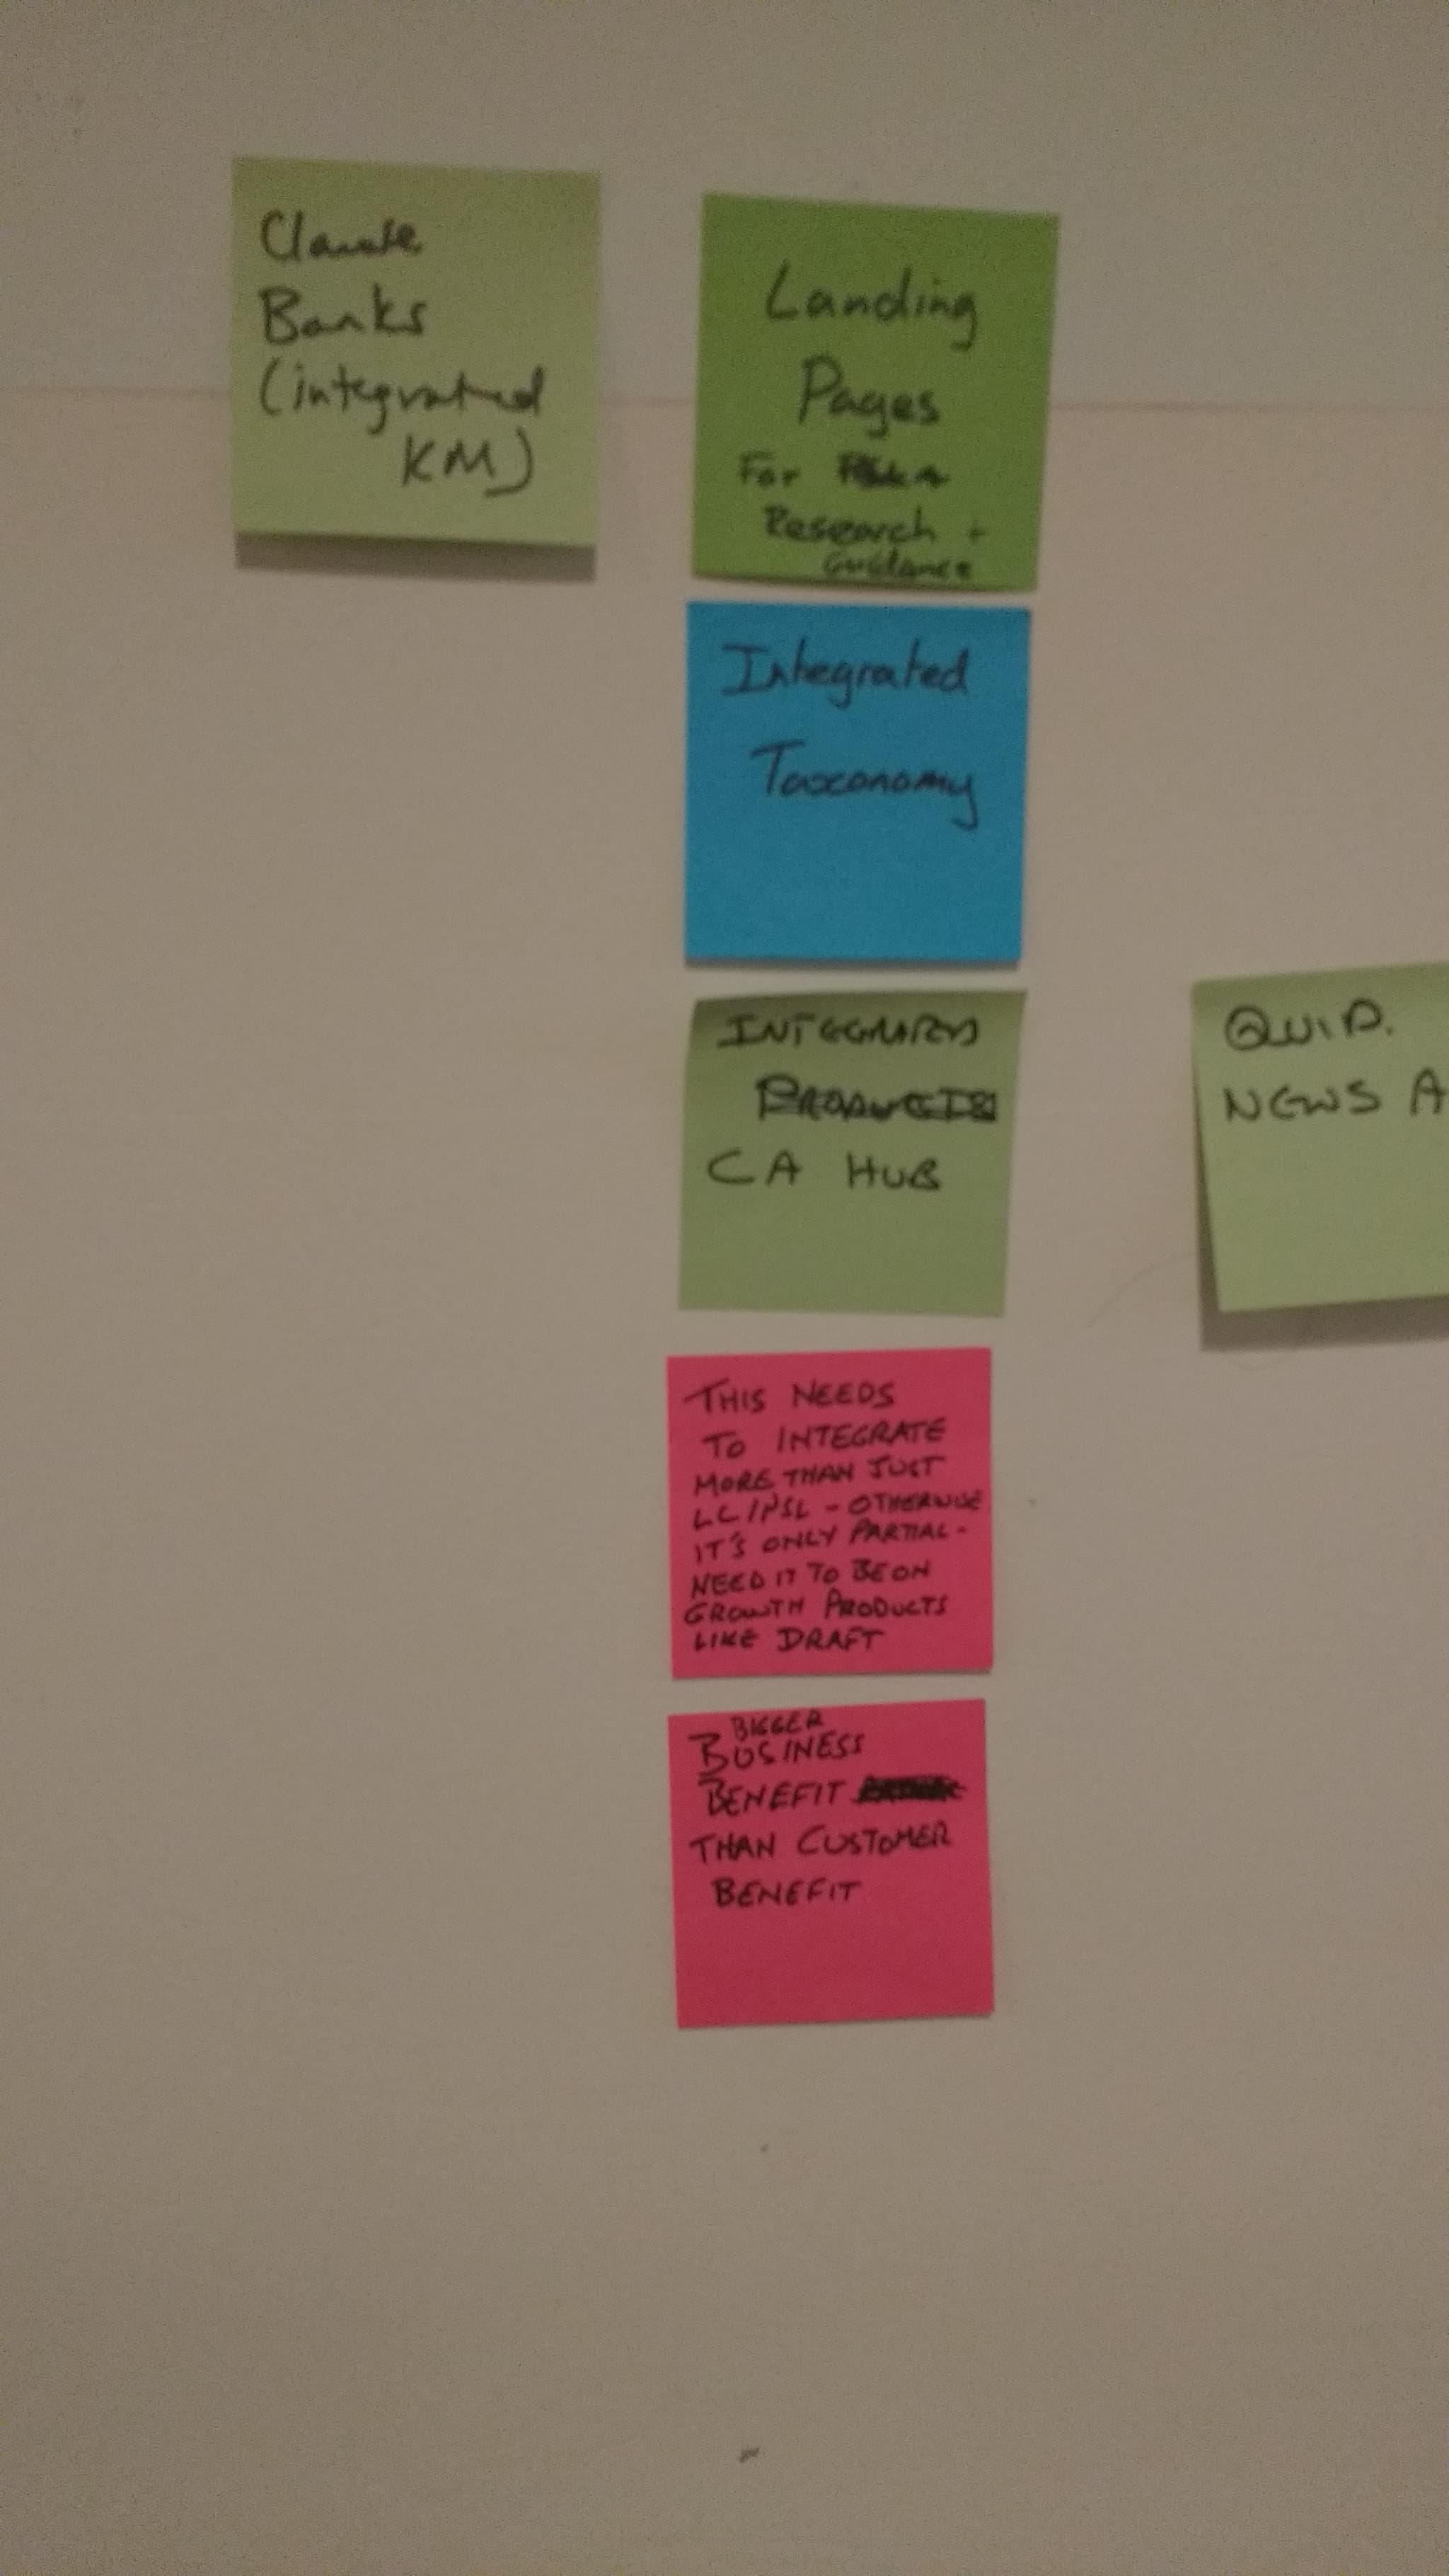 Clause
Banks
(integrated
KM)
Landing
Pages
For
Research +
Guidance
Integrated
Taxonomy
INTEGRATED
CA HUB
QUID.
NEWS A
THIS NEEDS
TO INTEGRATE
MORE THAN JUST
LC/PSL - OTHERWISE
IT'S ONLY PARTIAL -
NEED IT TO BE ON
GROWTH PRODUCTS
LIKE DRAFT
BIGGER
BUSINESS
BENEFIT
THAN CUSTOMER
BENEFIT